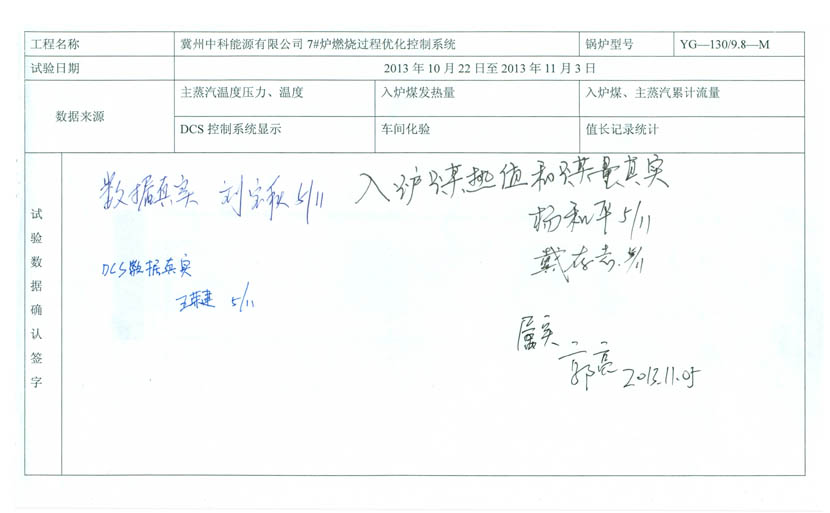 工程名称 冀州中科能源有限公司 7#炉燃烧过程优化控制系统 锅炉型号 YG—130/9.8—M
试验日期 2013 年 10 月 22 日至 2013 年 11 月 3 日
数据来源
主蒸汽温度压力、温度 入炉煤发热量 入炉煤、主蒸汽累计流量
DCS 控制系统显示 车间化验 值长记录统计
试验数据确认签字
数据真实 刘宝秋 5/11
入炉煤热值和煤量真实
杨和平 5/11
戴存志 5/11
DCS数据真实
王荣建 5/11
属实
郭亮 2013.11.05